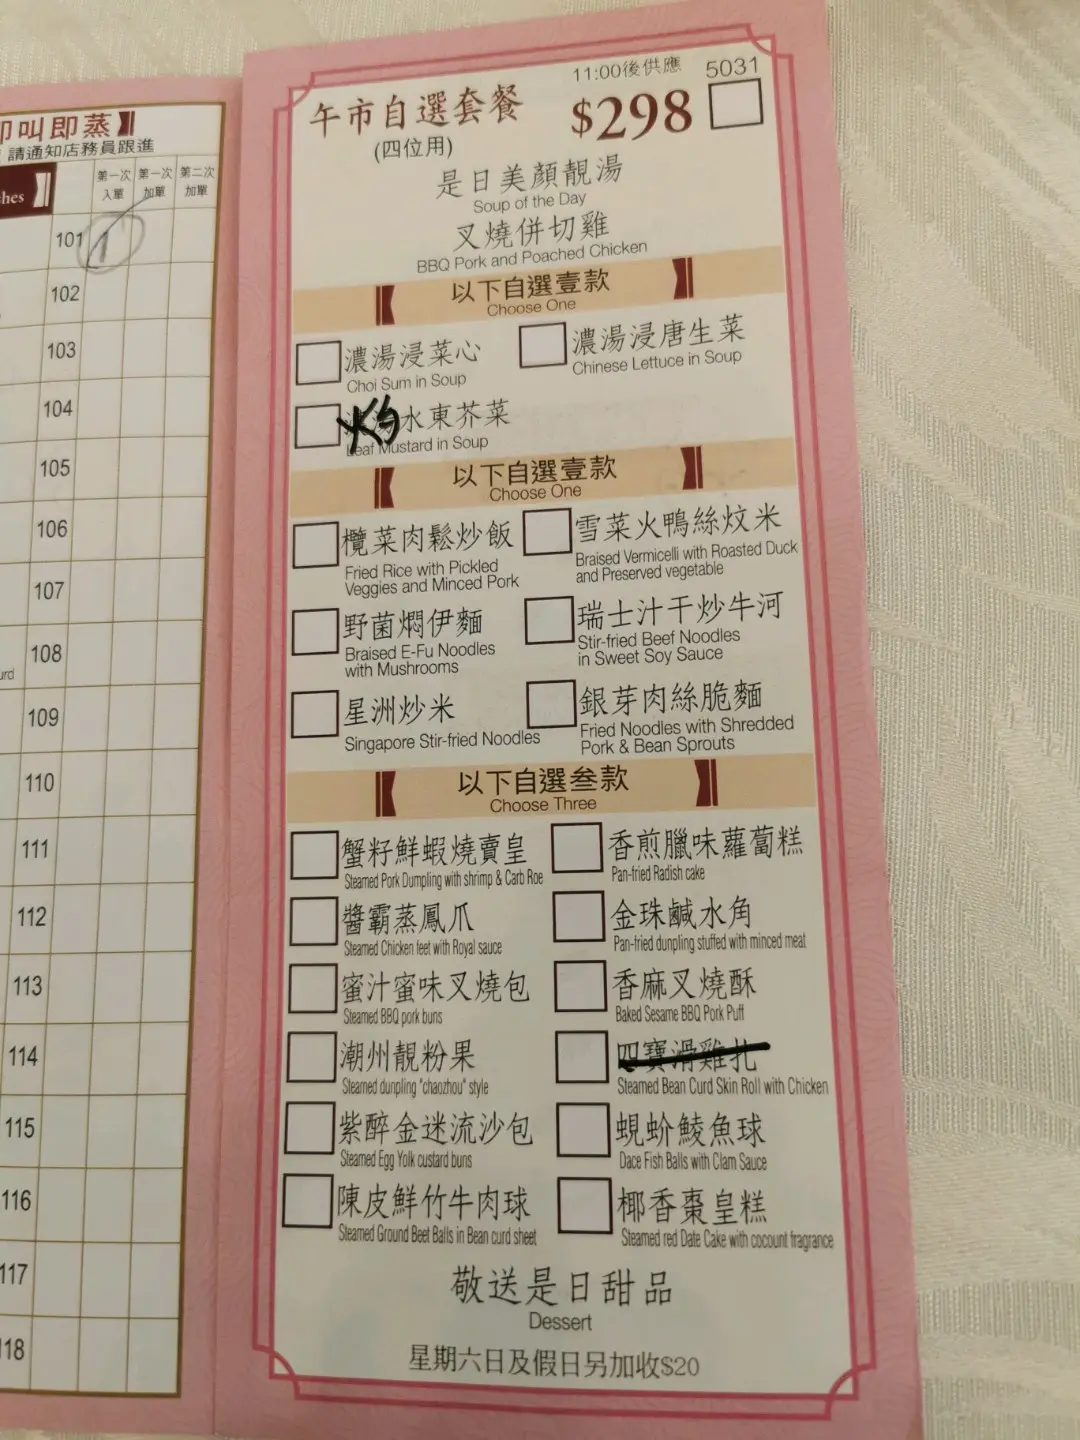 即叫即蒸
請通知店務員跟進
hes
第一次入單
第一次加單
第二次加單
101
1
102
103
104
105
106
107
108
urd
109
110
111
112
113
114
115
116
117
118
11:00後供應
5031
午市自選套餐
$298
(四位用)
是日美顏靚湯
Soup of the Day
叉燒併切雞
BBQ Pork and Poached Chicken
以下自選壹款
Choose One
濃湯浸菜心
Choi Sum in Soup
濃湯浸唐生菜
Chinese Lettuce in Soup
灼水東芥菜
Leaf Mustard in Soup
以下自選壹款
Choose One
欖菜肉鬆炒飯
Fried Rice with Pickled
Veggies and Minced Pork
雪菜火鴨絲炆米
Braised Vermicelli with Roasted Duck
and Preserved vegetable
野菌燜伊麵
Braised E-Fu Noodles
with Mushrooms
瑞士汁干炒牛河
Stir-fried Beef Noodles
in Sweet Soy Sauce
星洲炒米
Singapore Stir-fried Noodles
銀芽肉絲脆麵
Fried Noodles with Shredded
Pork & Bean Sprouts
以下自選叁款
Choose Three
蟹籽鮮蝦燒賣皇
Steamed Pork Dumpling with shrimp & Carb Roe
香煎臘味蘿蔔糕
Pan-fried Radish cake
醬霸蒸鳳爪
Steamed Chicken feet with Royal sauce
金珠鹹水角
Pan-fried dunpling stuffed with minced meat
蜜汁蜜味叉燒包
Steamed BBQ pork buns
香麻叉燒酥
Baked Sesame BBQ Pork Puff
潮州靚粉果
Steamed dunpling "chaozhou" style
四寶滑雞扎
Steamed Bean Curd Skin Roll with Chicken
紫醉金迷流沙包
Steamed Egg Yolk custard buns
蜆蚧鯪魚球
Dace Fish Balls with Clam Sauce
陳皮鮮竹牛肉球
Steamed Ground Beet Balls in Bean curd sheet
椰香棗皇糕
Steamed red Date Cake with cocount fragrance
敬送是日甜品
Dessert
星期六日及假日另加收$20